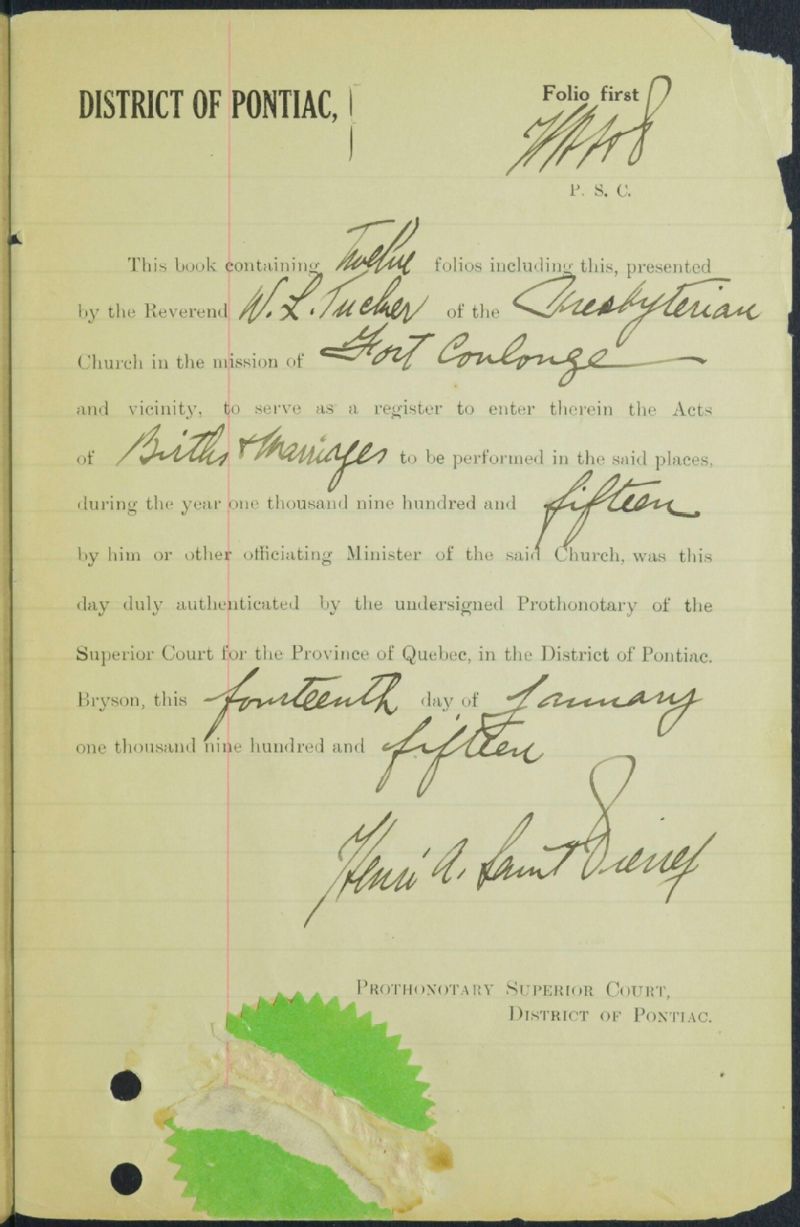 DISTRICT OF PONTIAC,
Folio first
P. S. C.
This book containing Twelve folios including this, presented
by the Reverend W. L. Tucker of the Presbyterian
Church in the mission of Fort Coulonge
and vicinity, to serve as a register to enter therein the Acts
of Births & Marriages to be performed in the said places,
during the year one thousand nine hundred and fifteen
by him or other officiating Minister of the said Church, was this
day duly authenticated by the undersigned Prothonotary of the
Superior Court for the Province of Quebec, in the District of Pontiac.
Bryson, this fourteenth day of January
one thousand nine hundred and fifteen
Henri A. Saint Pierre
PROTHONOTARY SUPERIOR COURT,
DISTRICT OF PONTIAC.